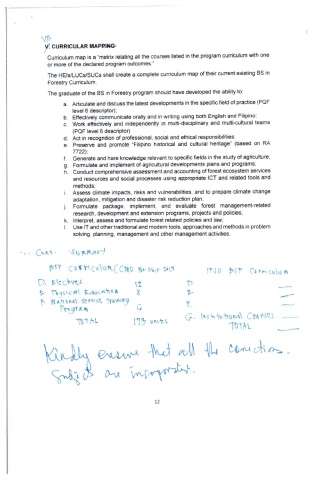 VII.
V. CURRICULAR MAPPING
Curriculum map is a "matrix relating all the courses listed in the program curriculum with one
or more of the declared program outcomes."
The HEIs/LUCs/SUCs shall create a complete curriculum map of their current existing BS in
Forestry Curriculum.
The graduate of the BS in Forestry program should have developed the ability to:
a. Articulate and discuss the latest developments in the specific field of practice (PQF
level 6 descriptor);
b. Effectively communicate orally and in writing using both English and Filipino;
c. Work effectively and independently in multi-disciplinary and multi-cultural teams
(PQF level 6 descriptor)
d. Act in recognition of professional, social and ethical responsibilities;
e. Preserve and promote "Filipino historical and cultural heritage" (based on RA
7722);
f. Generate and hare knowledge relevant to specific fields in the study of agriculture;
g. Formulate and implement of agricultural developments plans and programs;
h. Conduct comprehensive assessment and accounting of forest ecosystem services
and resources and social processes using appropriate ICT and related tools and
methods;
i. Assess climate impacts, risks and vulnerabilities, and to prepare climate change
adaptation, mitigation and disaster risk reduction plan;
j. Formulate package, implement, and evaluate forest management-related
research, development and extension programs, projects and policies;
k. Interpret, assess and formulate forest related policies and law;
l. Use IT and other traditional and modern tools, approaches and methods in problem
solving, planning, management and other management activities.
... Cont. Summary
BSF Curriculum (CMO
BSF Curriculum
D. Electives 12 D.
E. Physical Education 8 E.
F. National Service Training F.
Program 6 G. Institutional Courses
TOTAL 173 units TOTAL
Kindly ensure that all the corrections
are incorporated.
12